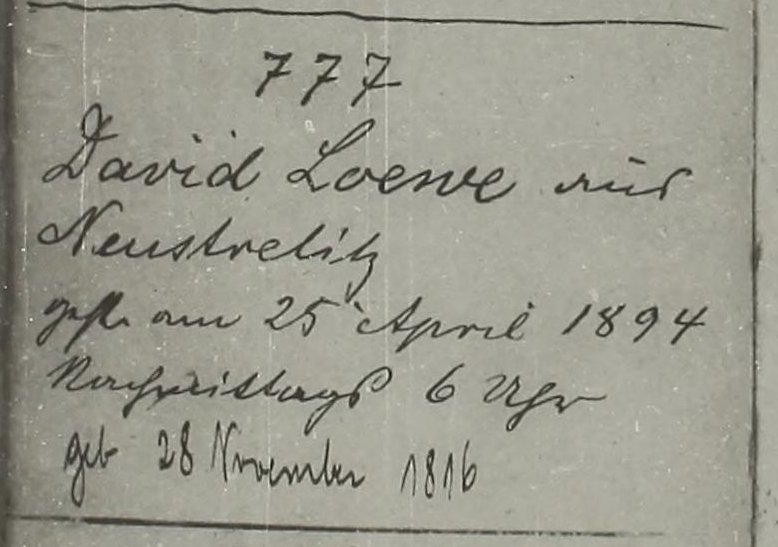 777
David Loewe aus
Neustrelitz
gest. am 25 April 1894
Nachmittags 6 Uhr
geb 28 November 1816